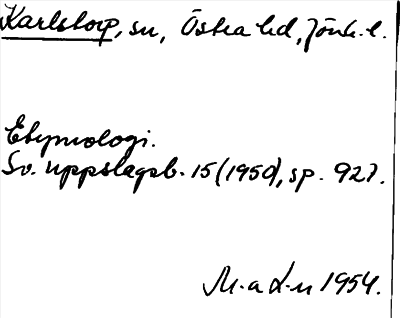 Karlstorp, sn, Östra hd, Jönk. l.
Etymologi.
Sv. uppslagsb. 15 (1950), sp. 927.
M. a L-n 1954.